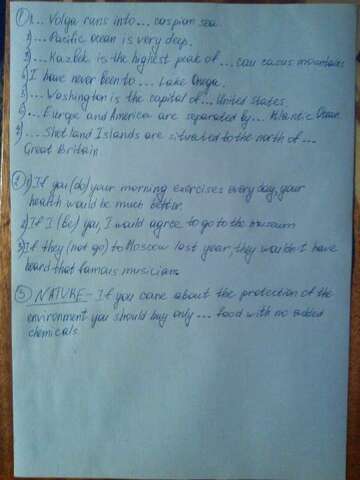 ① 1... Volga runs into... caspian sea.
2)... Pacific ocean is very deep.
3)... Kazbek is the highest peak of... cau casus mountains
4) I have never been to... Lake Onega.
5)... Washington is the capital of... United States.
6)... Europe and America are separated by... Atlantic Ocean.
7)... Shotland Islands are situated to the north of...
Great Britain
② 1) If you (do) your morning exercises every day, your
health would be much better.
2) If I (Be) you, I would agree to go to the museum
3) If they (not go) to Moscow last year, they wouldn't have
heard that famous musicians.
③ NATURE - If you care about the protection of the
environment you should buy only ... food with no added
chemicals